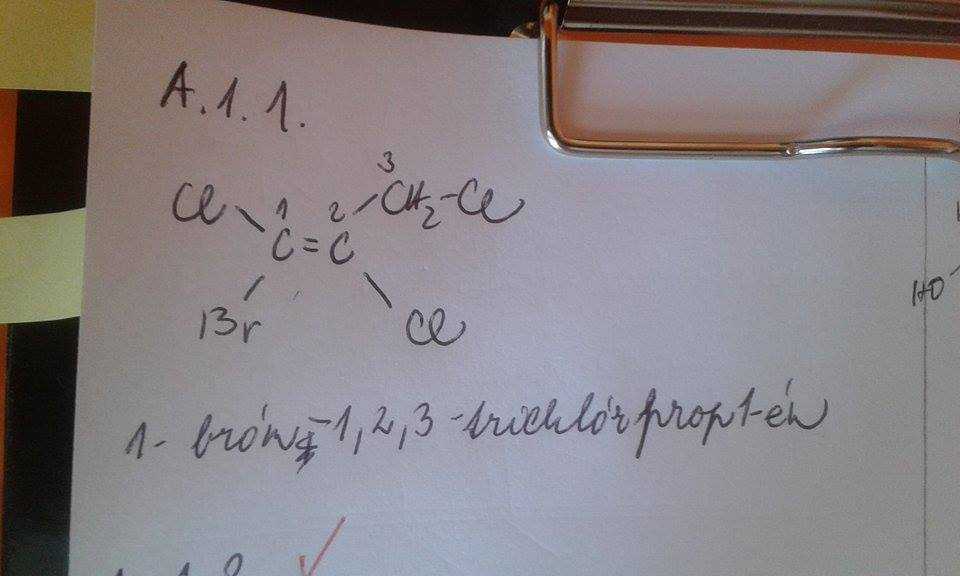 A.1.1.
3
Cl 1 2 CH2-Cl
C=C
Br Cl
HO
1-bróm-1,2,3-trichlórprop1-én